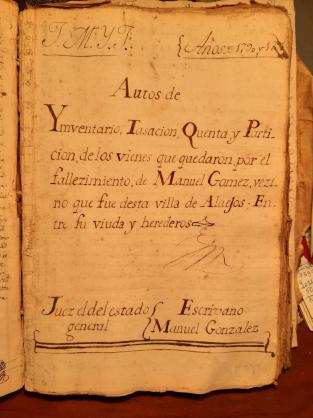 J. M. Y. J.
Años 1790 y
Autos de
Ymventario, Tasacion, Quenta y Parti
cion, de los vienes que quedaron, por el
fallezimiento, de Manuel Gomez, vezi
no que fue desta villa de Alaejos; En
tre su viuda y herederos
Juez el del estado
general
Escrivano
Manuel Gonzalez